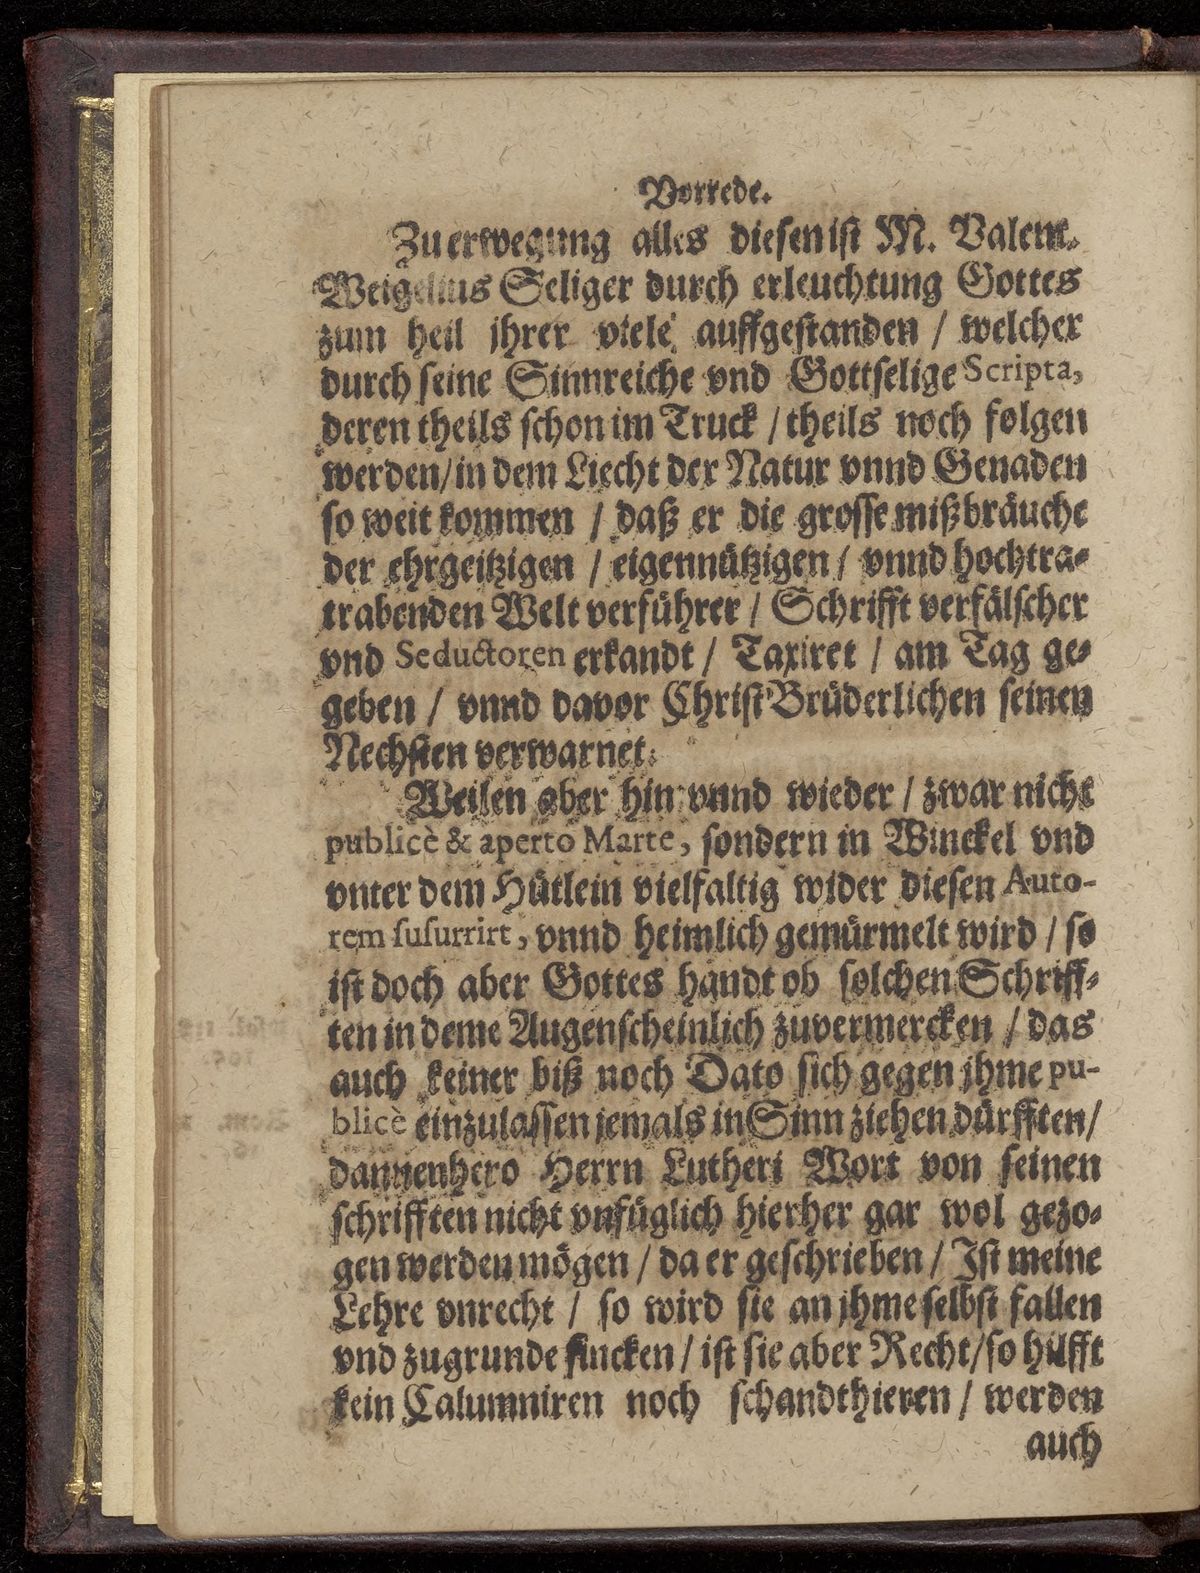 Vorrede.
Zu erwegung alles diesen ist M. Valent.
Weigelius Seliger durch erleuchtung Gottes
zum heil jhrer viele auffgestanden / welcher
durch seine Sinnreiche vnd Gottselige Scripta,
deren theils schon im Truck / theils noch folgen
werden / in dem Liecht der Natur vnnd Genaden
so weit kommen / daß er die grosse mißbräuche
der ehrgeitzigen / eigennützigen / vnnd hochtra-
trabenden Welt verführer / Schrifft verfälscher
vnd Seductoren erkandt / Taxiret / am Tag ge-
geben / vnnd davor ChristBrüderlichen seinen
Nechsten verwarnet.
Weilen aber hin vnnd wieder / zwar nicht
publicè & aperto Marte, sondern in Winckel vnd
vnter dem Hütlein vielfaltig wider diesen Auto-
rem susurrirt, vnnd heimlich gemürmelt wird / so
ist doch aber Gottes handt ob solchen Schriff-
ten in deme Augenscheinlich zuvermercken / das
auch keiner biß noch Dato sich gegen jhme pu-
blicè einzulassen jemals in Sinn ziehen dürfften /
dannenhero Herrn Lutheri Wort von seinen
schrifften nicht vnfüglich hierher gar wol gezo-
gen werden mögen / da er geschrieben / Ist meine
Lehre vnrecht / so wird sie an jhme selbst fallen
vnd zugrunde sincken / ist sie aber Recht / so hilfft
kein Calumniren noch schandthieren / werden
auch